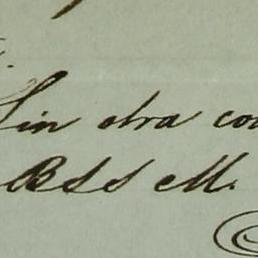 Sin otra co
BSSM.